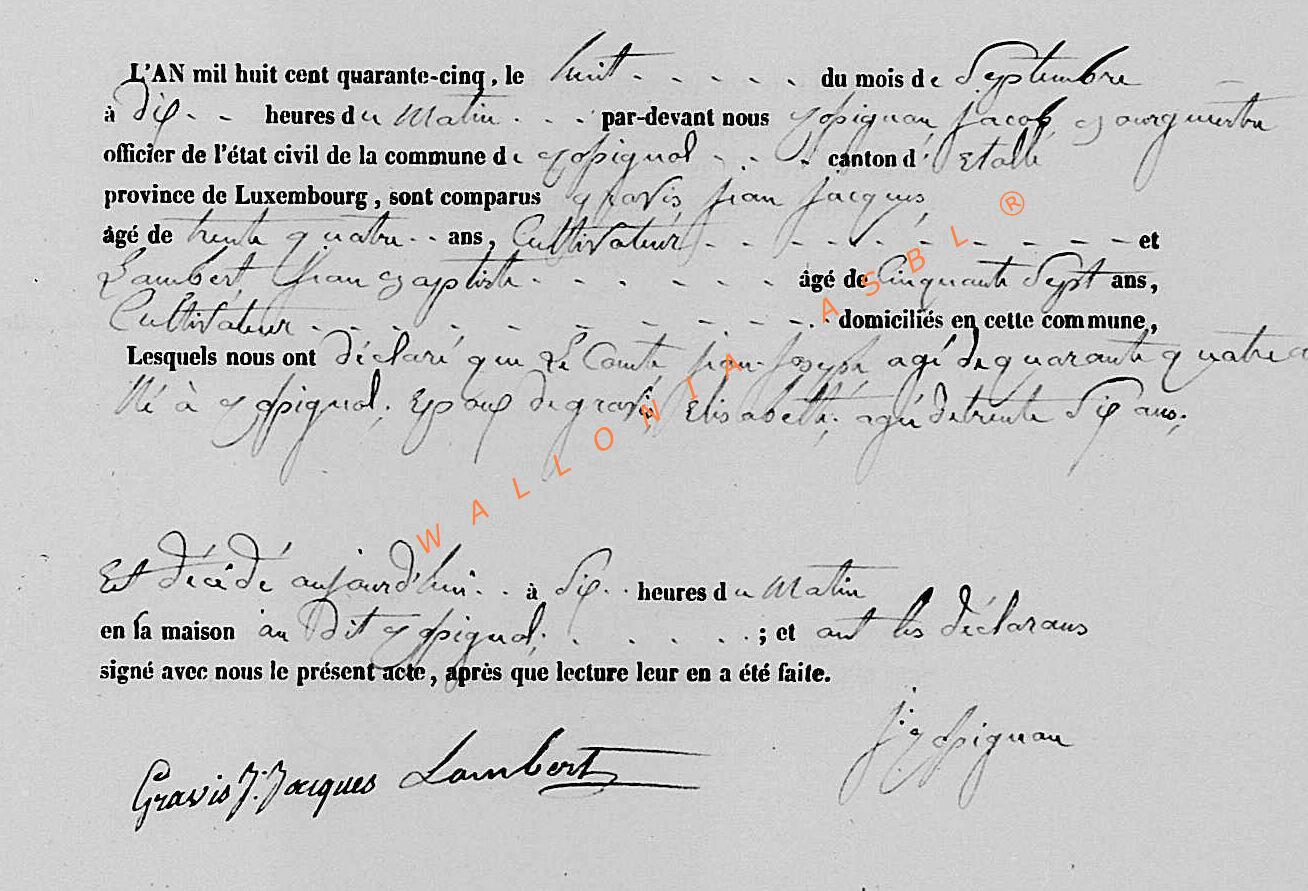 L'AN mil huit cent quarante-cinq, le huit - - - - - du mois de Septembre
à dix - - heures du Matin - - - par-devant nous Rossignon, Jacob, Bourgmestre
officier de l'état civil de la commune de Rossignol - - - - canton d'Etalle
province de Luxembourg, sont comparus Gravis, Jean Jacques,
âgé de trente quatre - - ans, Cultivateur - - - - - - - - - - - et
Lambert, Jean Baptiste - - - - - - - âgé de Cinquante Sept ans,
Cultivateur - - - - - - - - - - - - domiciliés en cette commune,
Lesquels nous ont déclaré que Le Comte Jean-Joseph agé de quarante quatre a
Né à Rossignol. Epoux de gravis, Elisabethe; agée de trente Six ans;
Est décédé aujourd'hui - - à Six - - heures du Matin
en sa maison au dit Rossignol; - - - - - ; et ont les déclarans
signé avec nous le présent acte, après que lecture leur en a été faite.
J: Rossignon
Gravis J: Jacques Lambert
WALLONIA ASBL ®